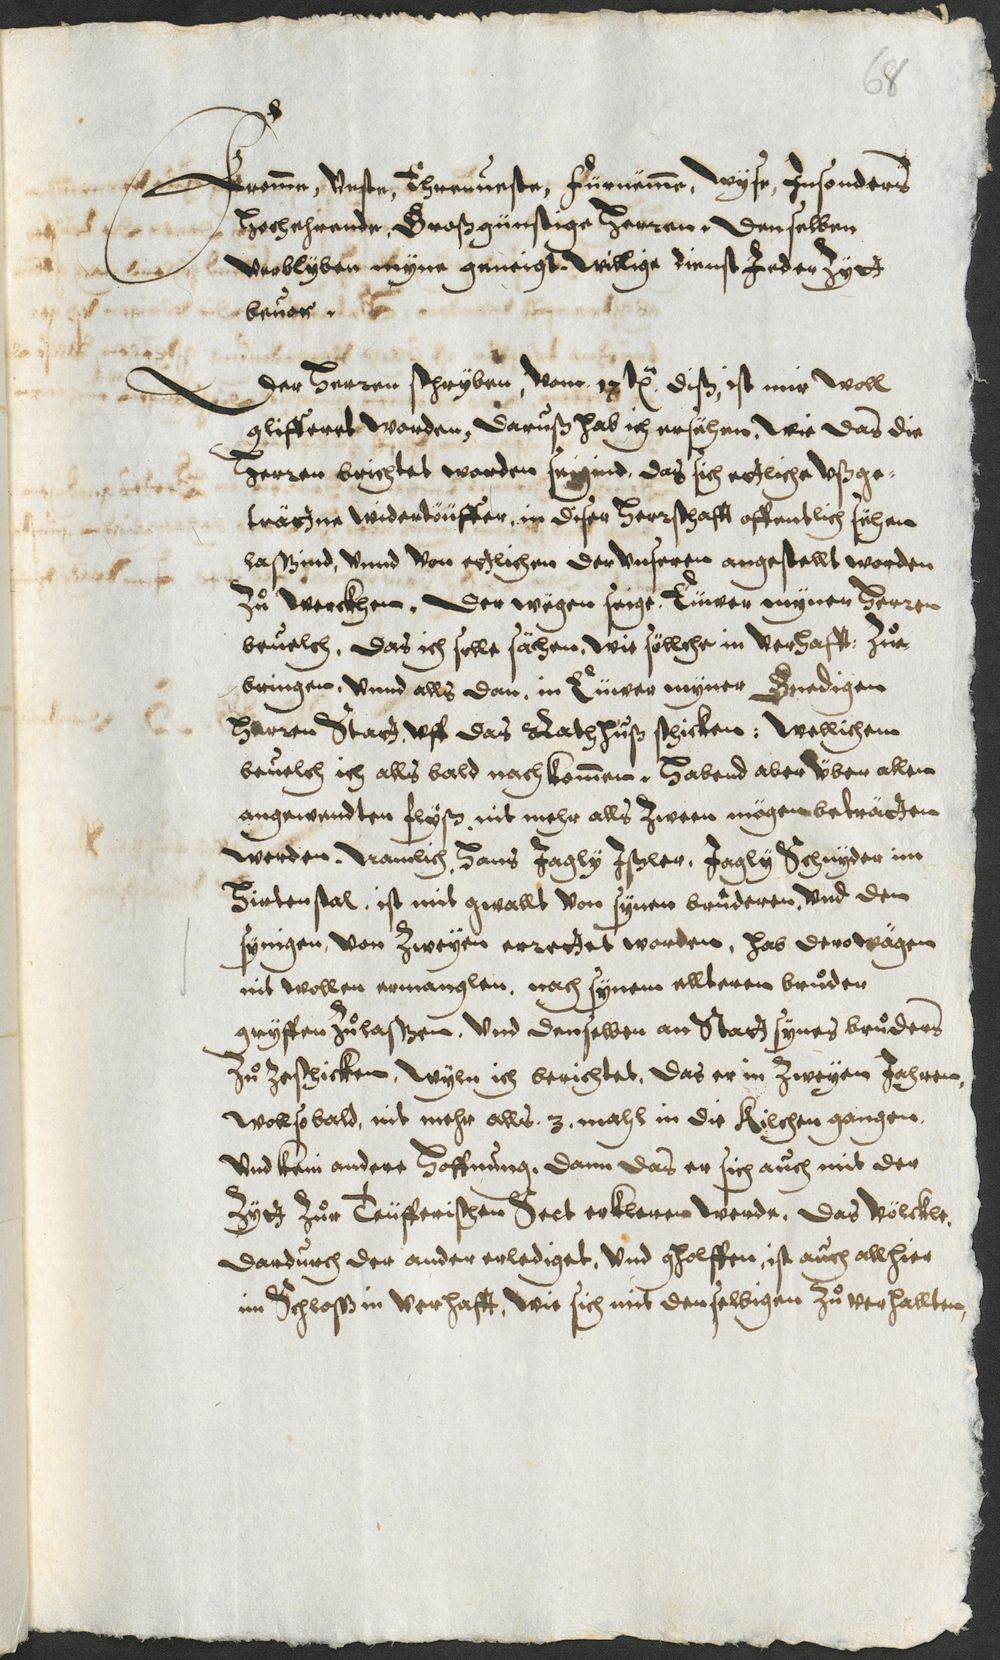 68
Fromme, Veste, Ehrenveste, Fürnemme, Wyse, Jnsonders
Hochehrende, Großgünstige Herren. Denselben
verblyben myne geneigt. Willige dienst Jeder Zytt
bevor.
Der Herren schryben, vom 17t. diß, ist mir woll
glifferet worden, Daruß hab ich ersehen, wie das die
Herren brichtet worden seigind, das sich ettliche vßge-
trättne widertöüffer, in diser Herrschafft offentlich sehen
lassind, vnnd von ettlichen der vnseren angestellt worden
Zů werckhen. Der wegen seige Eüwer myner Herren
bevelch, das ich sölle sähen, wie söllche in verhafft: Zůe
bringen, vnnd alls dan, in Eüwer myner Gnedigen
Herren Statt vff das Rathhuß schicken: wellichem
bevelch ich alls bald nachkommen. Habend aber über allen
angewendten flyß, nit mehr alls Zween mögen beträtten
werden. Namlich Hans Jagly Jßler, Jagly Schnyder im
Hirtenstal, ist mit gwallt von synen brůderen, vnd den
synigen, von Zweyen errettet worden, hab derowägen
nit wollen ermanglen, nach synem ellteren brůder
gryffen Zůlassen, vnd denselben an Statt synes brůders
Zů Zeschicken, wyln ich berichtet, das er in Zweyen Jahren,
woll so bald, nit mehr alls 3. mahl in die Kilchen gangen.
Vnd kein andere Hoffnung, dann das er sich auch mit der
Zytt Zůr Teüfferischen Sect erkleren werde. Das völckle,
dardurch der ander erlediget, vnd gholffen, ist auch allhier
im Schloß in verhafft, wie sich mit denselbigen Zů verhallten,